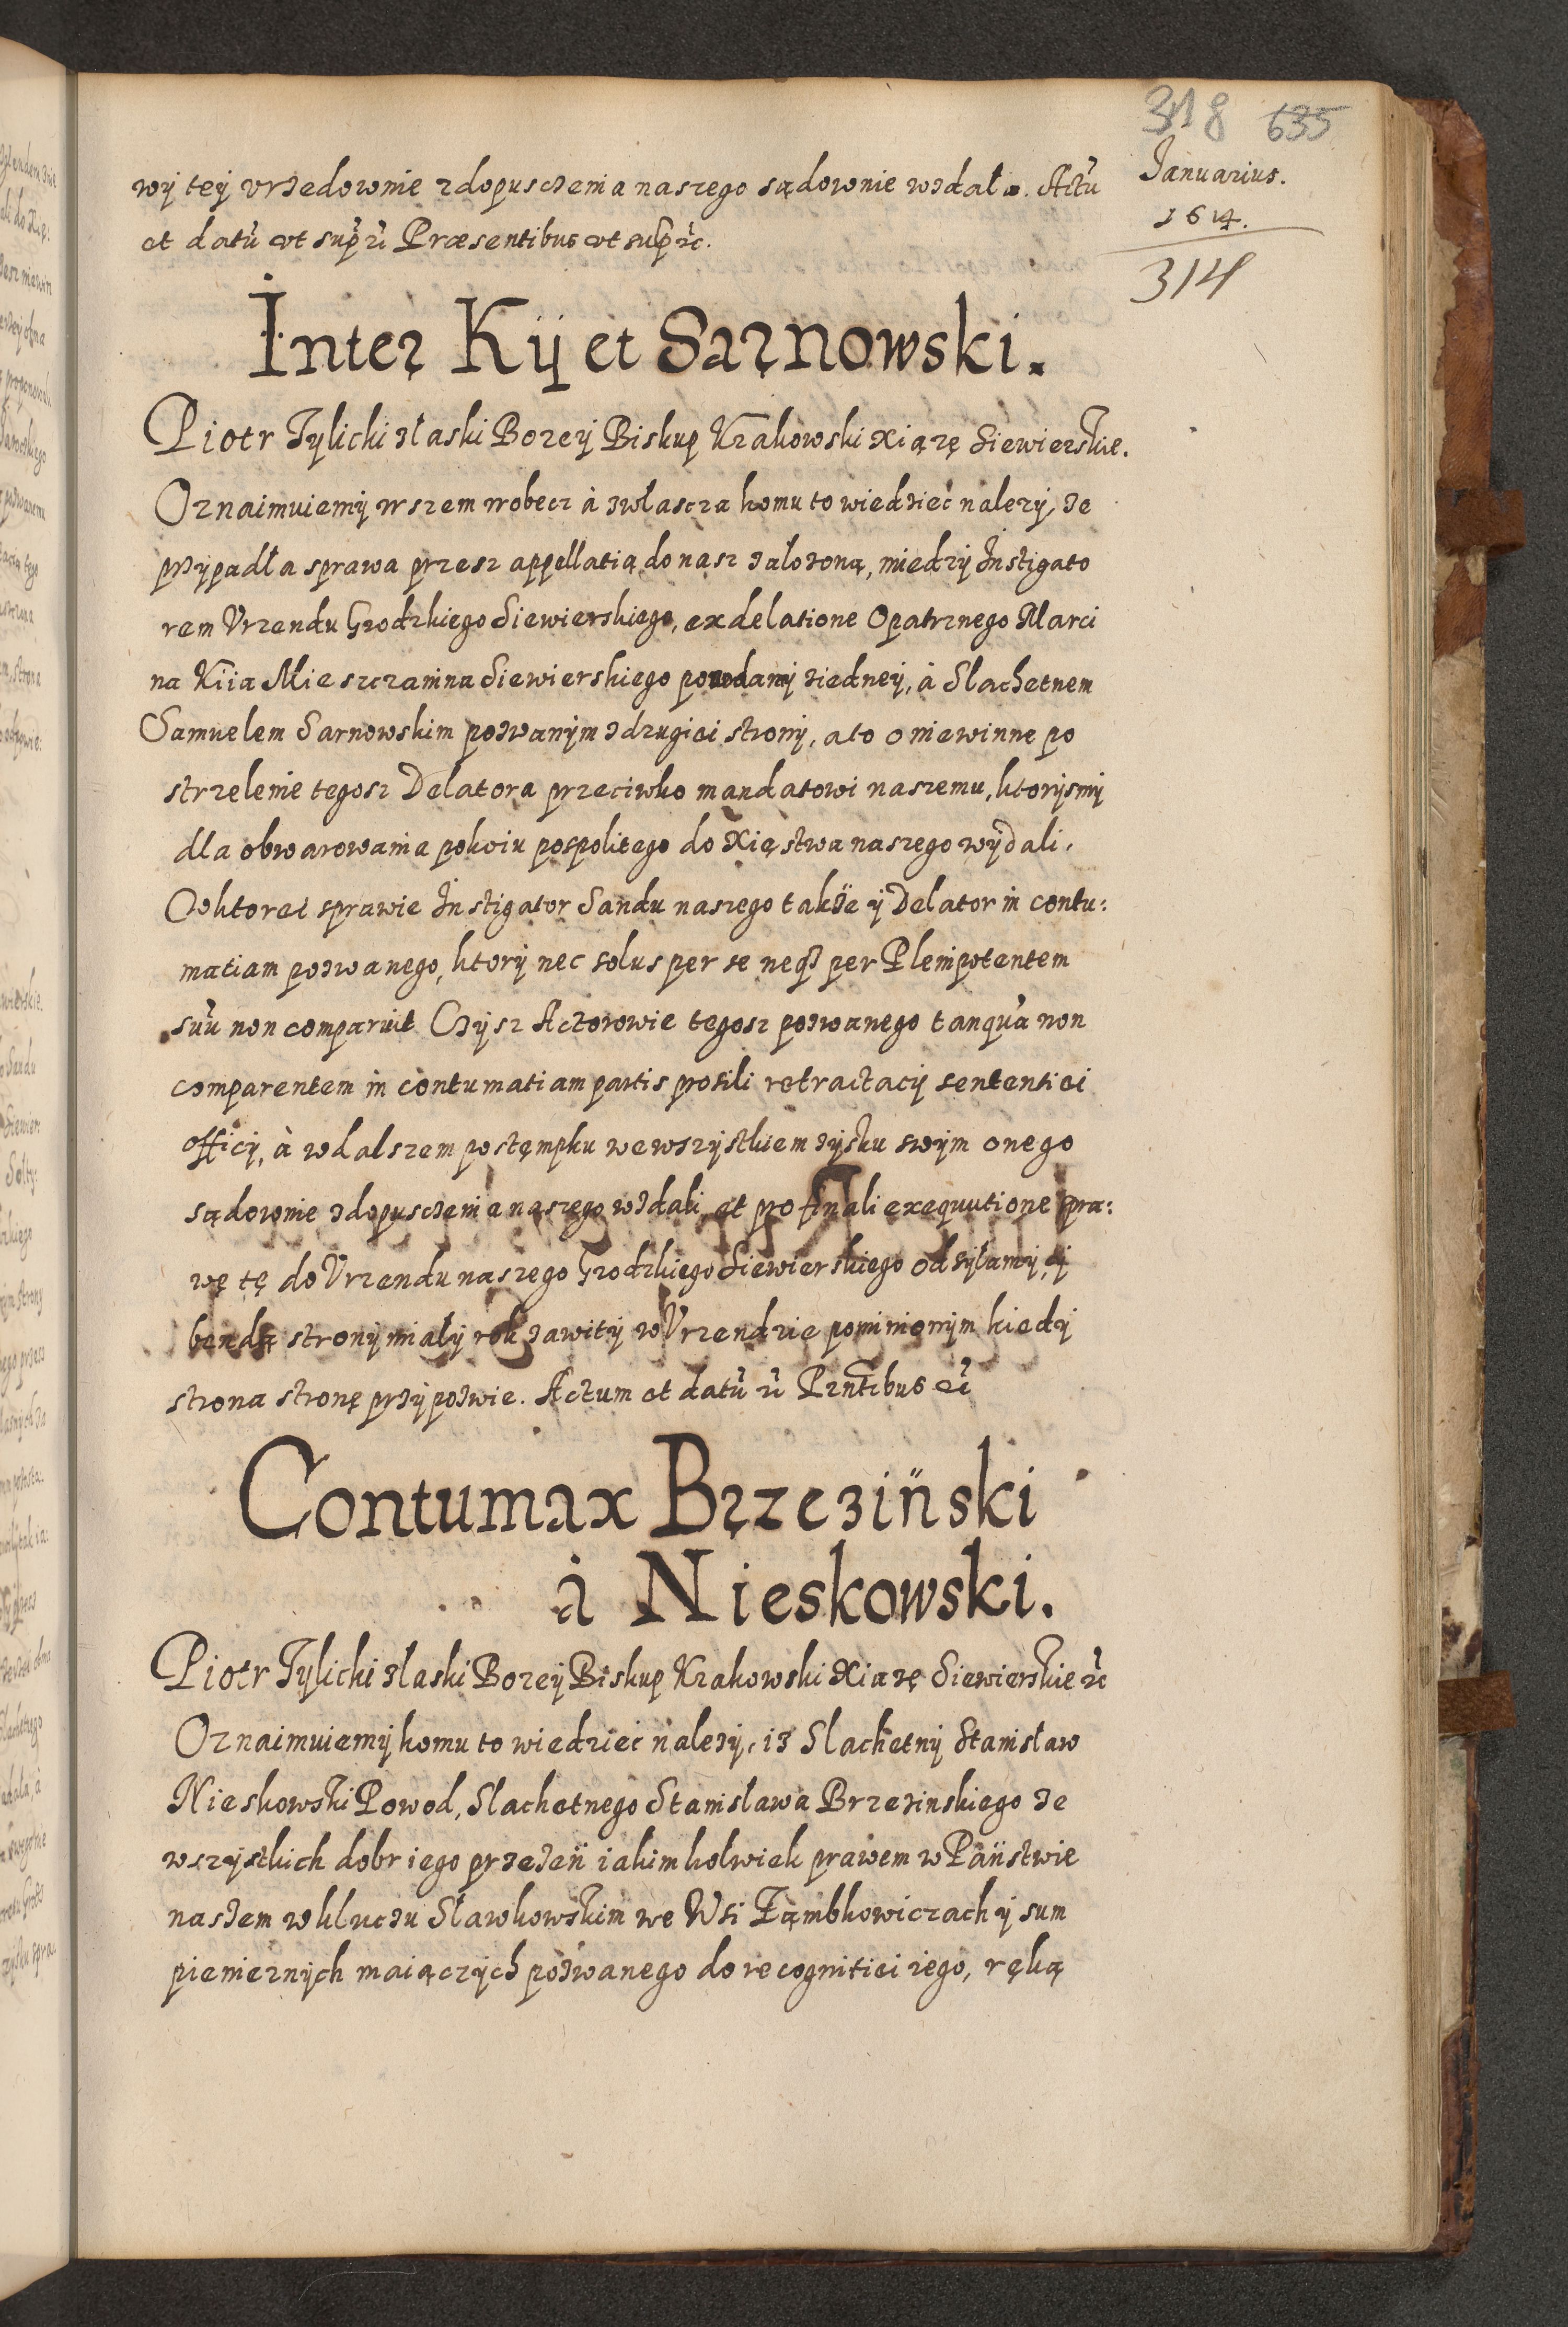 318 635
Januarius.
1614.
314
wy tey vrzedownie z dopusczenia naszego sądownie wzdała. Actũ
et datũ vt supr ꝛc Præsentibus vt supr ꝛc.
Inter Kij et Sarnowski.
Piotr Tylicki z łaski Bozey Biskup Krakowski Xiązę Siewierskie.
Oznaimuiemy wszem wobecz à zwłascza komu to wiedziec nalezy, ze
przypadła sprawa przesz appellatią do nasz załozoną, miedzy Instigato
rem Vrzendu Grodzkiego Siewierskiego, ex delatione Opatrznego Marci
na Kiia Mieszczanina Siewierskiego powdamy ziedney, à Slachetnem
Samuelem Sarnowskim pozwanym z drugiei strony, a to o niewinne po
strzelenie tegosz Delatora przeciwko mandatowi naszemu, ktorysmy
dla obwarowania pokoiu pospolitego do Xięstwa naszego wydali,
O ktorei sprawie Instigator Sandu naszego takze y Delator in contu:
matiam pozwanego, ktory nec solus per se neqz per Plenipotentem
suũ non comparuit Czysz Actorowie tegosz pozwanego tanquã non
comparentem in contumatiam partis prosili retractacij sententiei
officij, à w dalszem postęmpku we wszystkiem zysku swym onego
sądownie z dopusczenia naszego wzdali, et pro finali exequutione spra:
wę tę do Vrzendu naszego Grodzkiego Siewierskiego odsyłamy, y
bendą strony miały rok zawity w Vrzendzie pomienionym kiedy
strona stronę przypozwie. Actum et datũ ꝛc Prntibus ꝛc
Contumax Brzeziński
à Nieskowski.
Piotr Tylicki z łaski Bozey Biskup Krakowski Xiązę Siewierskie ꝛc
Oznaimuiemy komu to wiedziec nalezy, iz Slachetny Stanisław
Nieskowski Powod, Slachetnego Stanisława Brzezinskiego ze
wszystkich dobr iego przezeń iakimkolwiek prawem w Państwie
naszem w kluczu Sławkowskim we Wsi Ząmbkowiczach y sum
pienieznych maiączych pozwanego do recognitiei iego, ręką